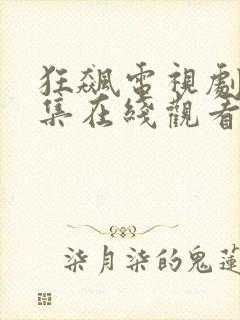 狂飆電視劇
集在綫觀看
柒月柒的鬼蓮